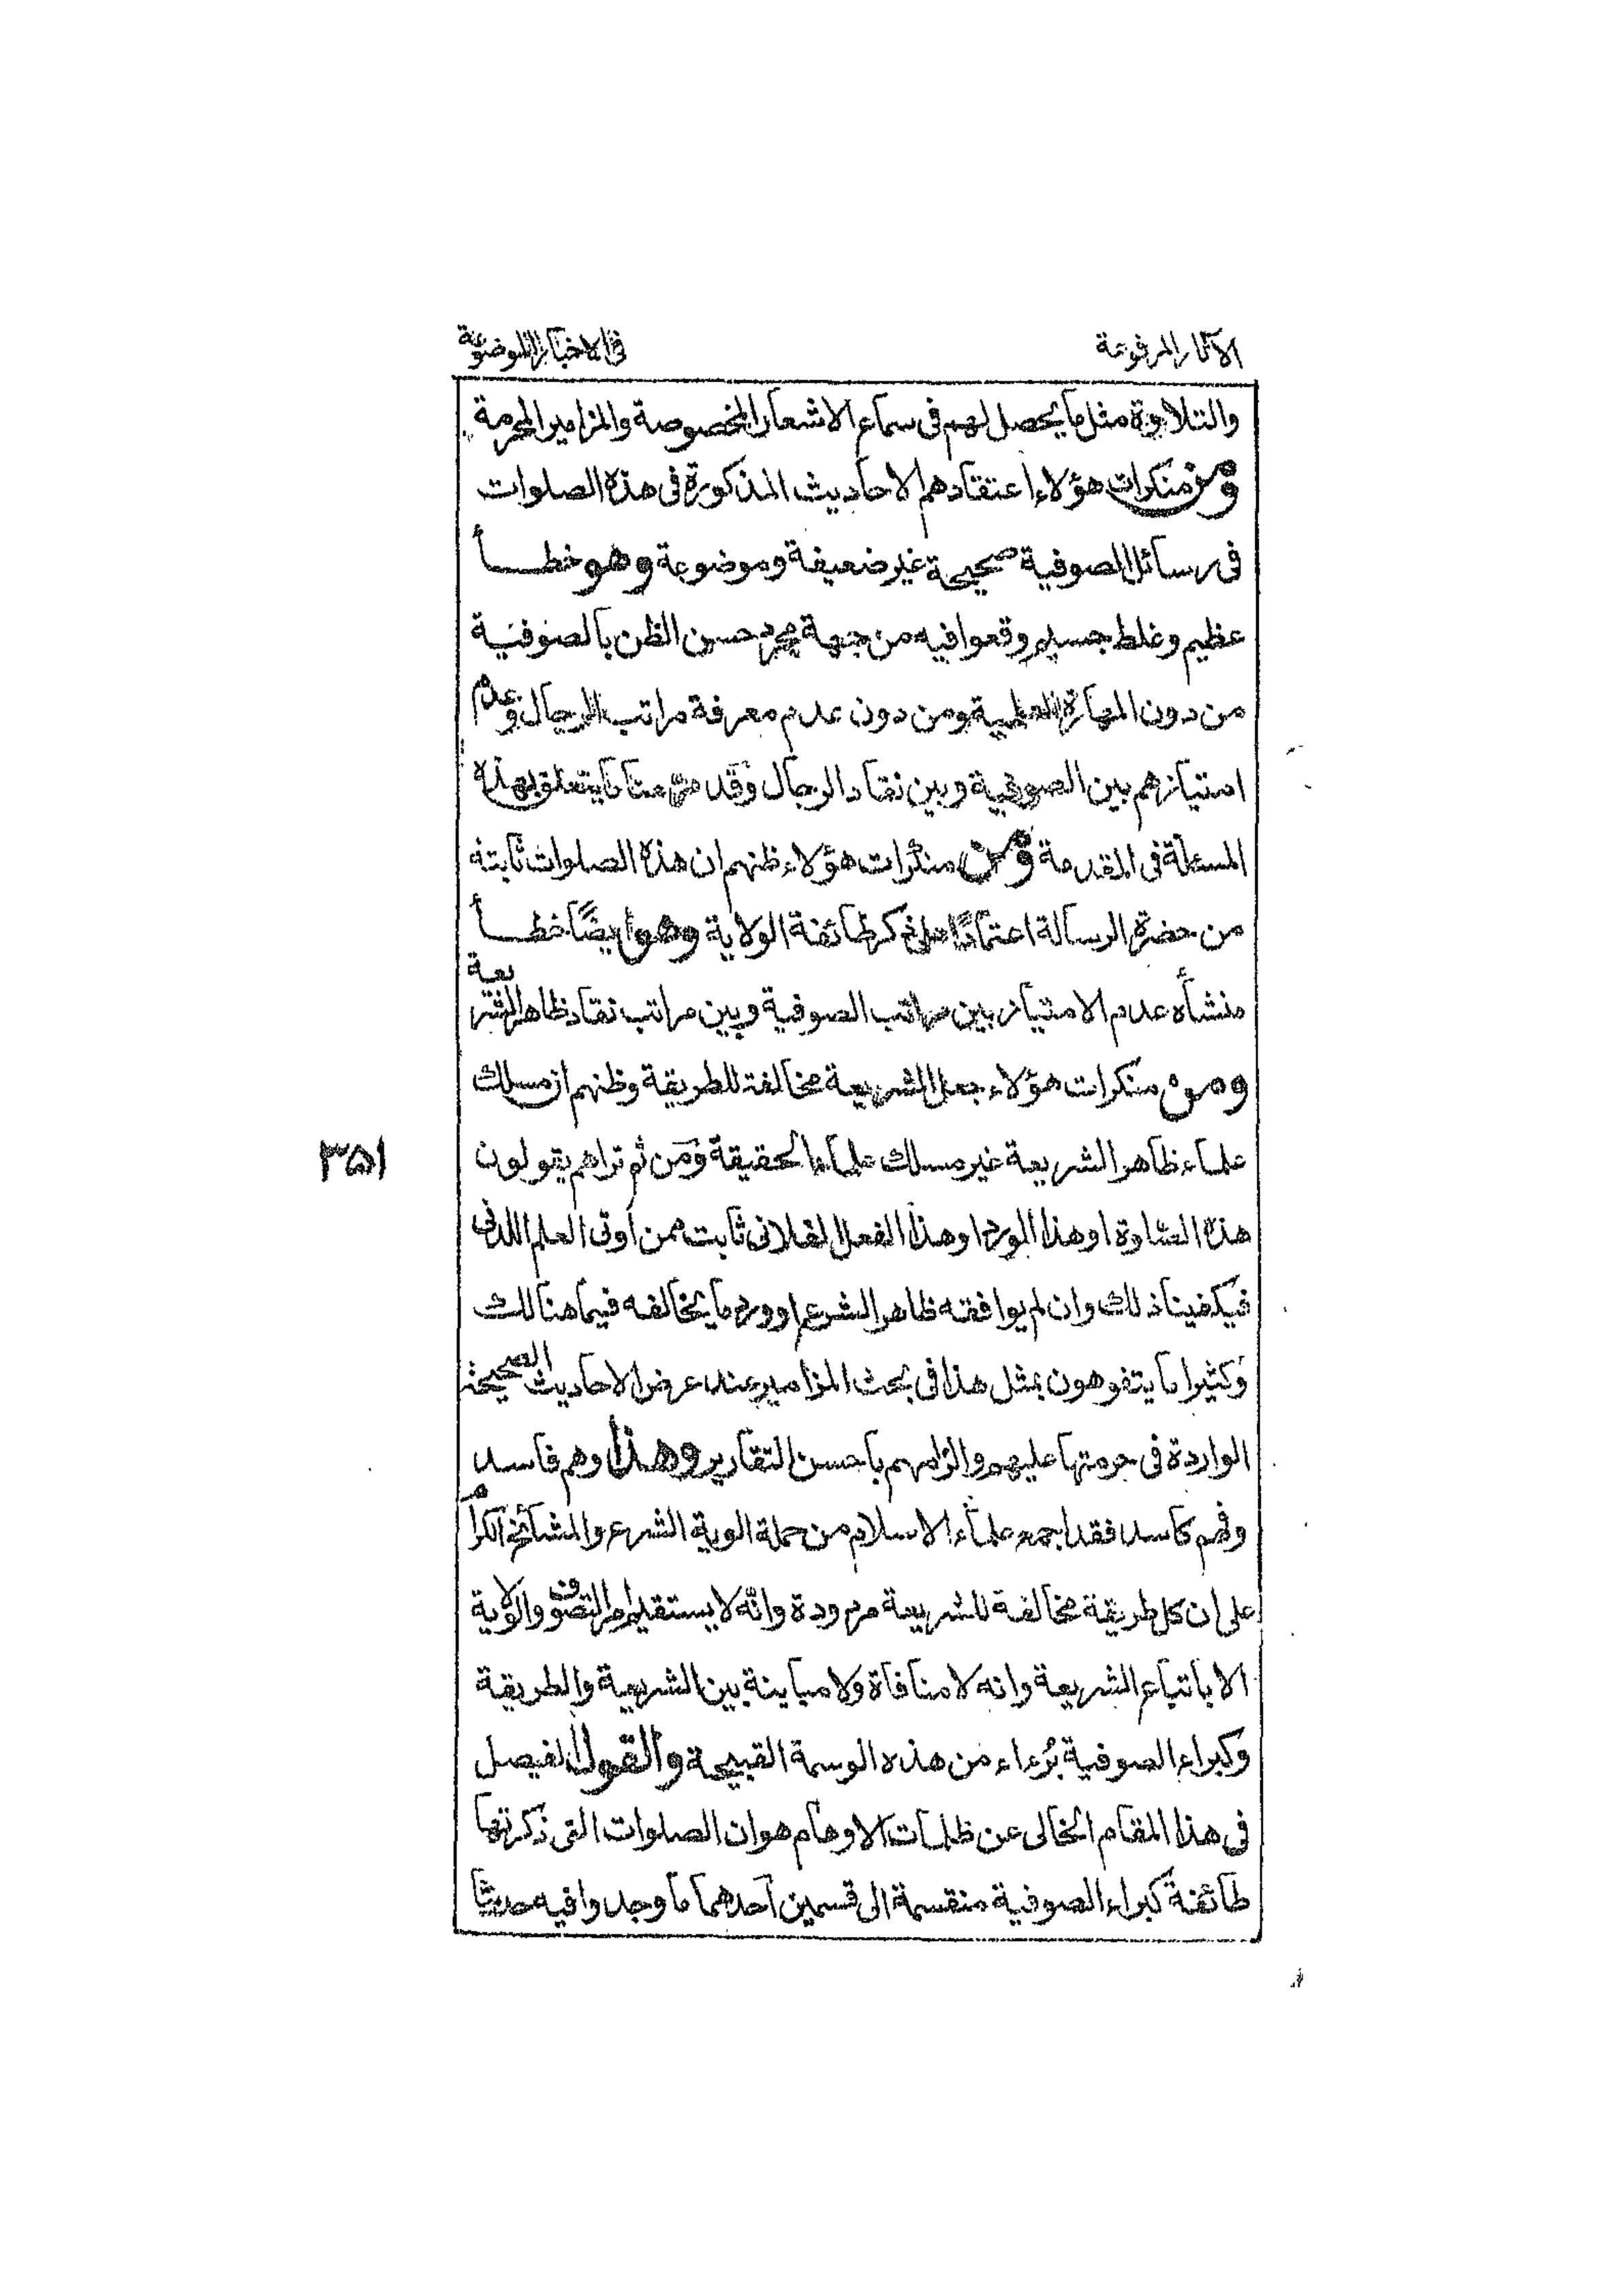 الآثار المرفوعة
في الاخبار الموضوعة
والتلاوة مثل ما يحصل لهم فى سماع الاشعار المخصوصة والمزامير المحرمة
ومن منكرات هؤلاء اعتقادهم الاحاديث المذكورة فى هذه الصلوات
فى رسائل الصوفية صحيحة غير ضعيفة وموضوعة وهو خطأ
عظيم وغلط جسيم وقعوا فيه من جهة مجرد حسن الظن بالصوفية
من دون المهارة العلمية ومن دون عدم معرفة مراتب الرجال وعدم
امتيازهم بين الصوفية وبين نقاد الرجال وقد مر منا ما يتعلق بهذه
المسئلة فى المقدمة ومن منكرات هؤلاء ظنهم ان هذه الصلوات ثابتة
من حضرة الرسالة اعتمادًا على ذكر طائفة الولاية وهو ايضًا خطأ
منشأه عدم الامتياز بين مراتب الصوفية وبين مراتب نقاد ظاهر الشريعة
ومن منكرات هؤلاء جعل الشريعة مخالفة للطريقة وظنهم ان مسلك
علماء ظاهر الشريعة غير مسلك علماء الحقيقة ومن ثم تراهم يقولون
٣٥١
هذه الصلوة او هذا الورد او هذا الفعل الفلانى ثابت ممن اوتى العلم اللدنى
فيكفينا ذلك وان لم يوافقه ظاهر الشرع او ورد ما يخالفه فيما هنالك
وكثيرا ما يتفوهون بمثل هذا فى بحث المزامير عند عرض الاحاديث الصحيحة
الواردة فى حرمتها عليهم والزامهم باحسن التقارير وهذا وهم فاسد
وفهم كاسد فقد اجمع علماء الاسلام من حملة الوية الشرع والمشائخ الكرام
على ان كل طريقة مخالفة للشريعة مردودة وانه لا يستقيم امر التصوف والولاية
الا باتباع الشريعة وانه لا منافاة ولا مباينة بين الشريعة والطريقة
وكبراء الصوفية برءاء من هذه الوسمة القبيحة والقول الفيصل
فى هذا المقام الخالى عن ظلمات الاوهام هو ان الصلوات التى ذكرتها
طائفة كبراء الصوفية منقسمة الى قسمين احدهما ما وجدوا فيه حديثا